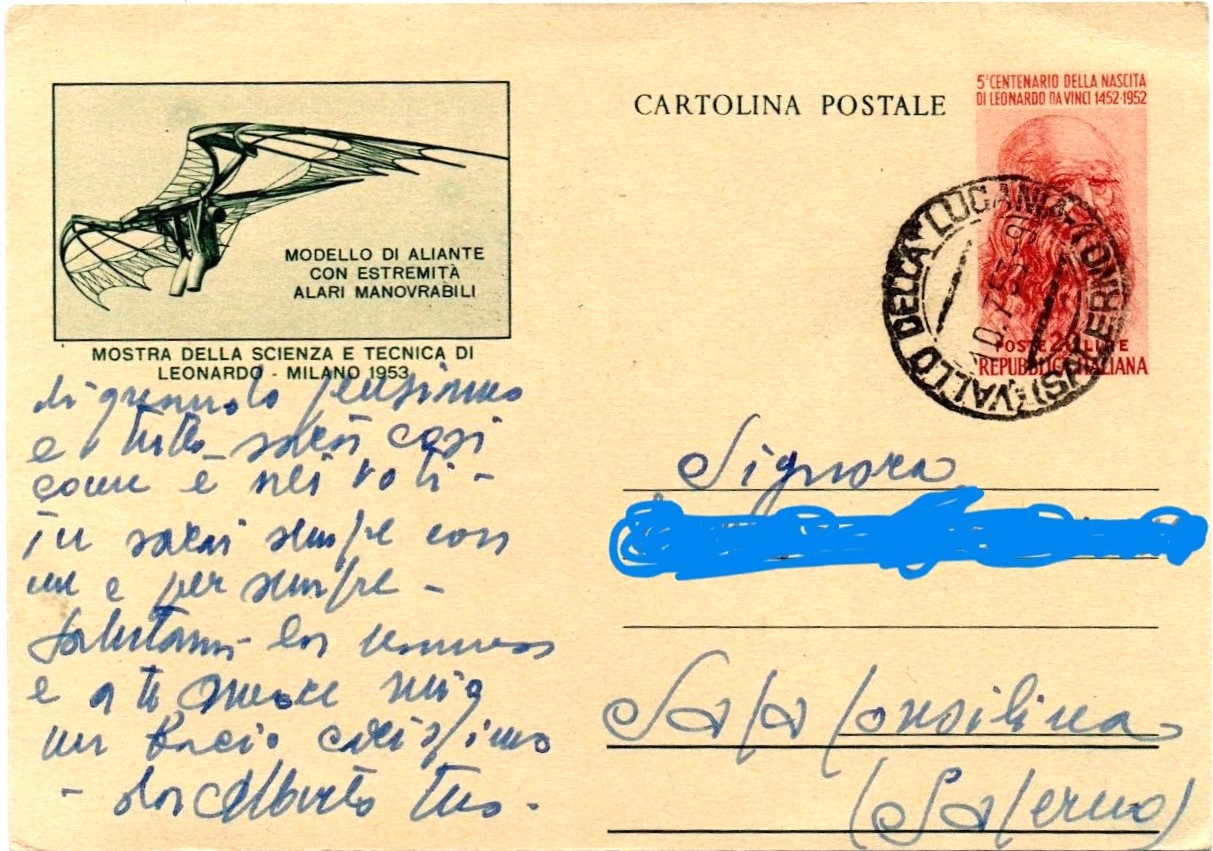 CARTOLINA POSTALE
5° CENTENARIO DELLA NASCITA
DI LEONARDO DA VINCI 1452-1952
POSTE 20 LIRE
REPUBBLICA ITALIANA
VALLO DELLA LUCANIA
(SALERNO)
MODELLO DI ALIANTE
CON ESTREMITÀ
ALARI MANOVRABILI
MOSTRA DELLA SCIENZA E TECNICA DI
LEONARDO - MILANO 1953
e tutto sarà così
come è nei voti -
tu sarai sempre con
me e per sempre -
Salutami
e a te amore mio
un bacio carissimo
Alberto tuo -
Signora
Sala Consilina
(Salerno)